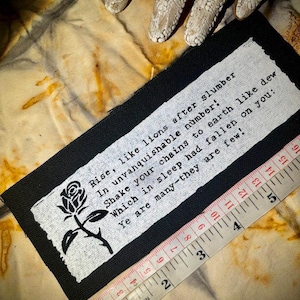 Rise, like lions after slumber
In unvanquishable number!
Shake your chains to earth like dew
Which in sleep had fallen on you:
Ye are many—they are few!
2
3
4
5